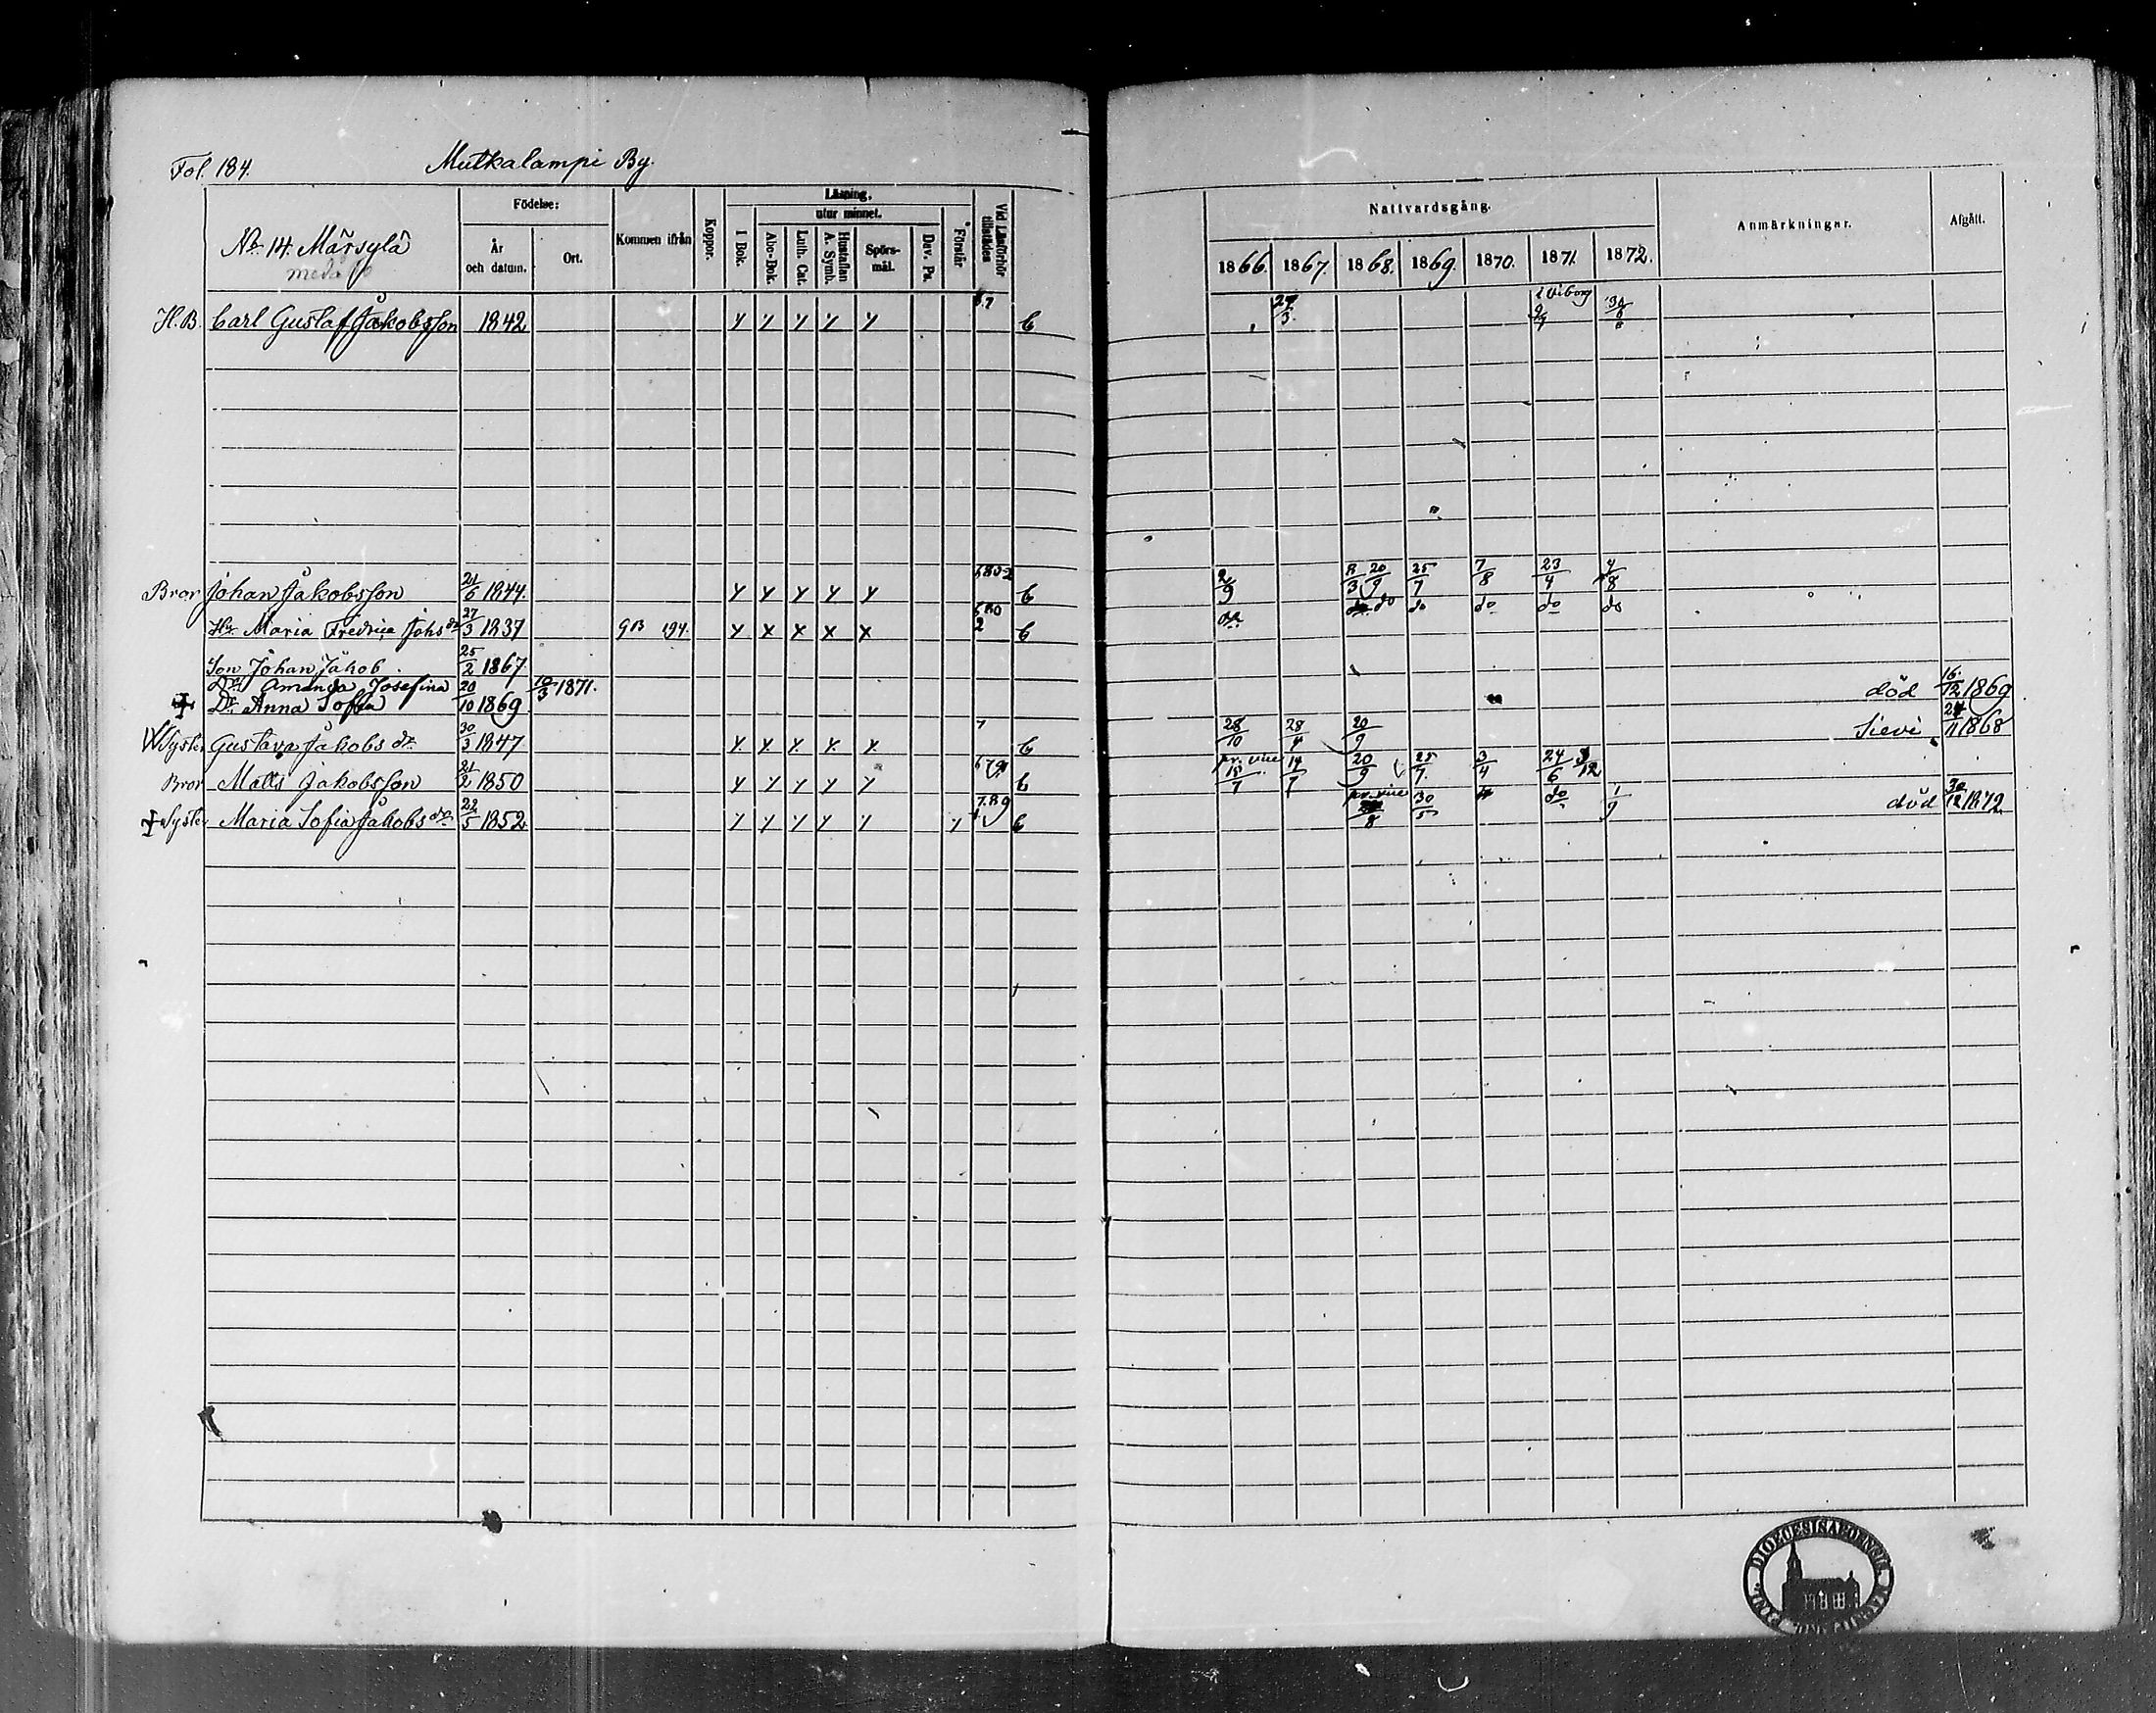 Fol. 184.
Mutkalampi By.
No 14. Märsylä
Födelse:
År och datum.
Ort.
Kommen ifrån
Koppor.
Läsning,
utur minnet.
I Bok.
Abc-Bok.
Luth. Cat.
Hustaflan A. Symb.
Spörs-mål.
Dav. Ps.
Förstår
Vid Läsförhör tillstädes
Nattvardsgång.
1866. 1867. 1868. 1869. 1870. 1871. 1872.
Anmärkningar.
Afgått.
H. B. Carl Gustaf Jakobsson 1842 y y y y y 6.7 b 27/3 i Viborg
Bror Johan Jakobsson 21/6 1844. y y y y y b 2/9 8/3 20/9 25/7 7/8 23/4 4/8
Hu Maria Fredrica Johs dr 27/3 1837 913 194. y x x x x b do do do do do do
Son Johan Jakob 25/2 1867
Dr Amanda Josefina 10/3 1871.
Dr Anna Sofia 20/10 1869 död 16/12 1869
Syster Gustava Jakobs dr 30/3 1847 y y y y y 7 b 28/10 28/4 20/9 Sievi 11 1868
Bror Matts Jakobsson 21/2 1850 y y y y y b pr. vice 15/7 14/7 20/9 25/7. 3/4 24/6 3/12
Syster Maria Sofia Jakobs dr 22/5 1852 y y y y y y 7.8 9 b pr. vice 8 30/5 do 1/9 död 30/12 1872
DIOECESIS ABOENSIS